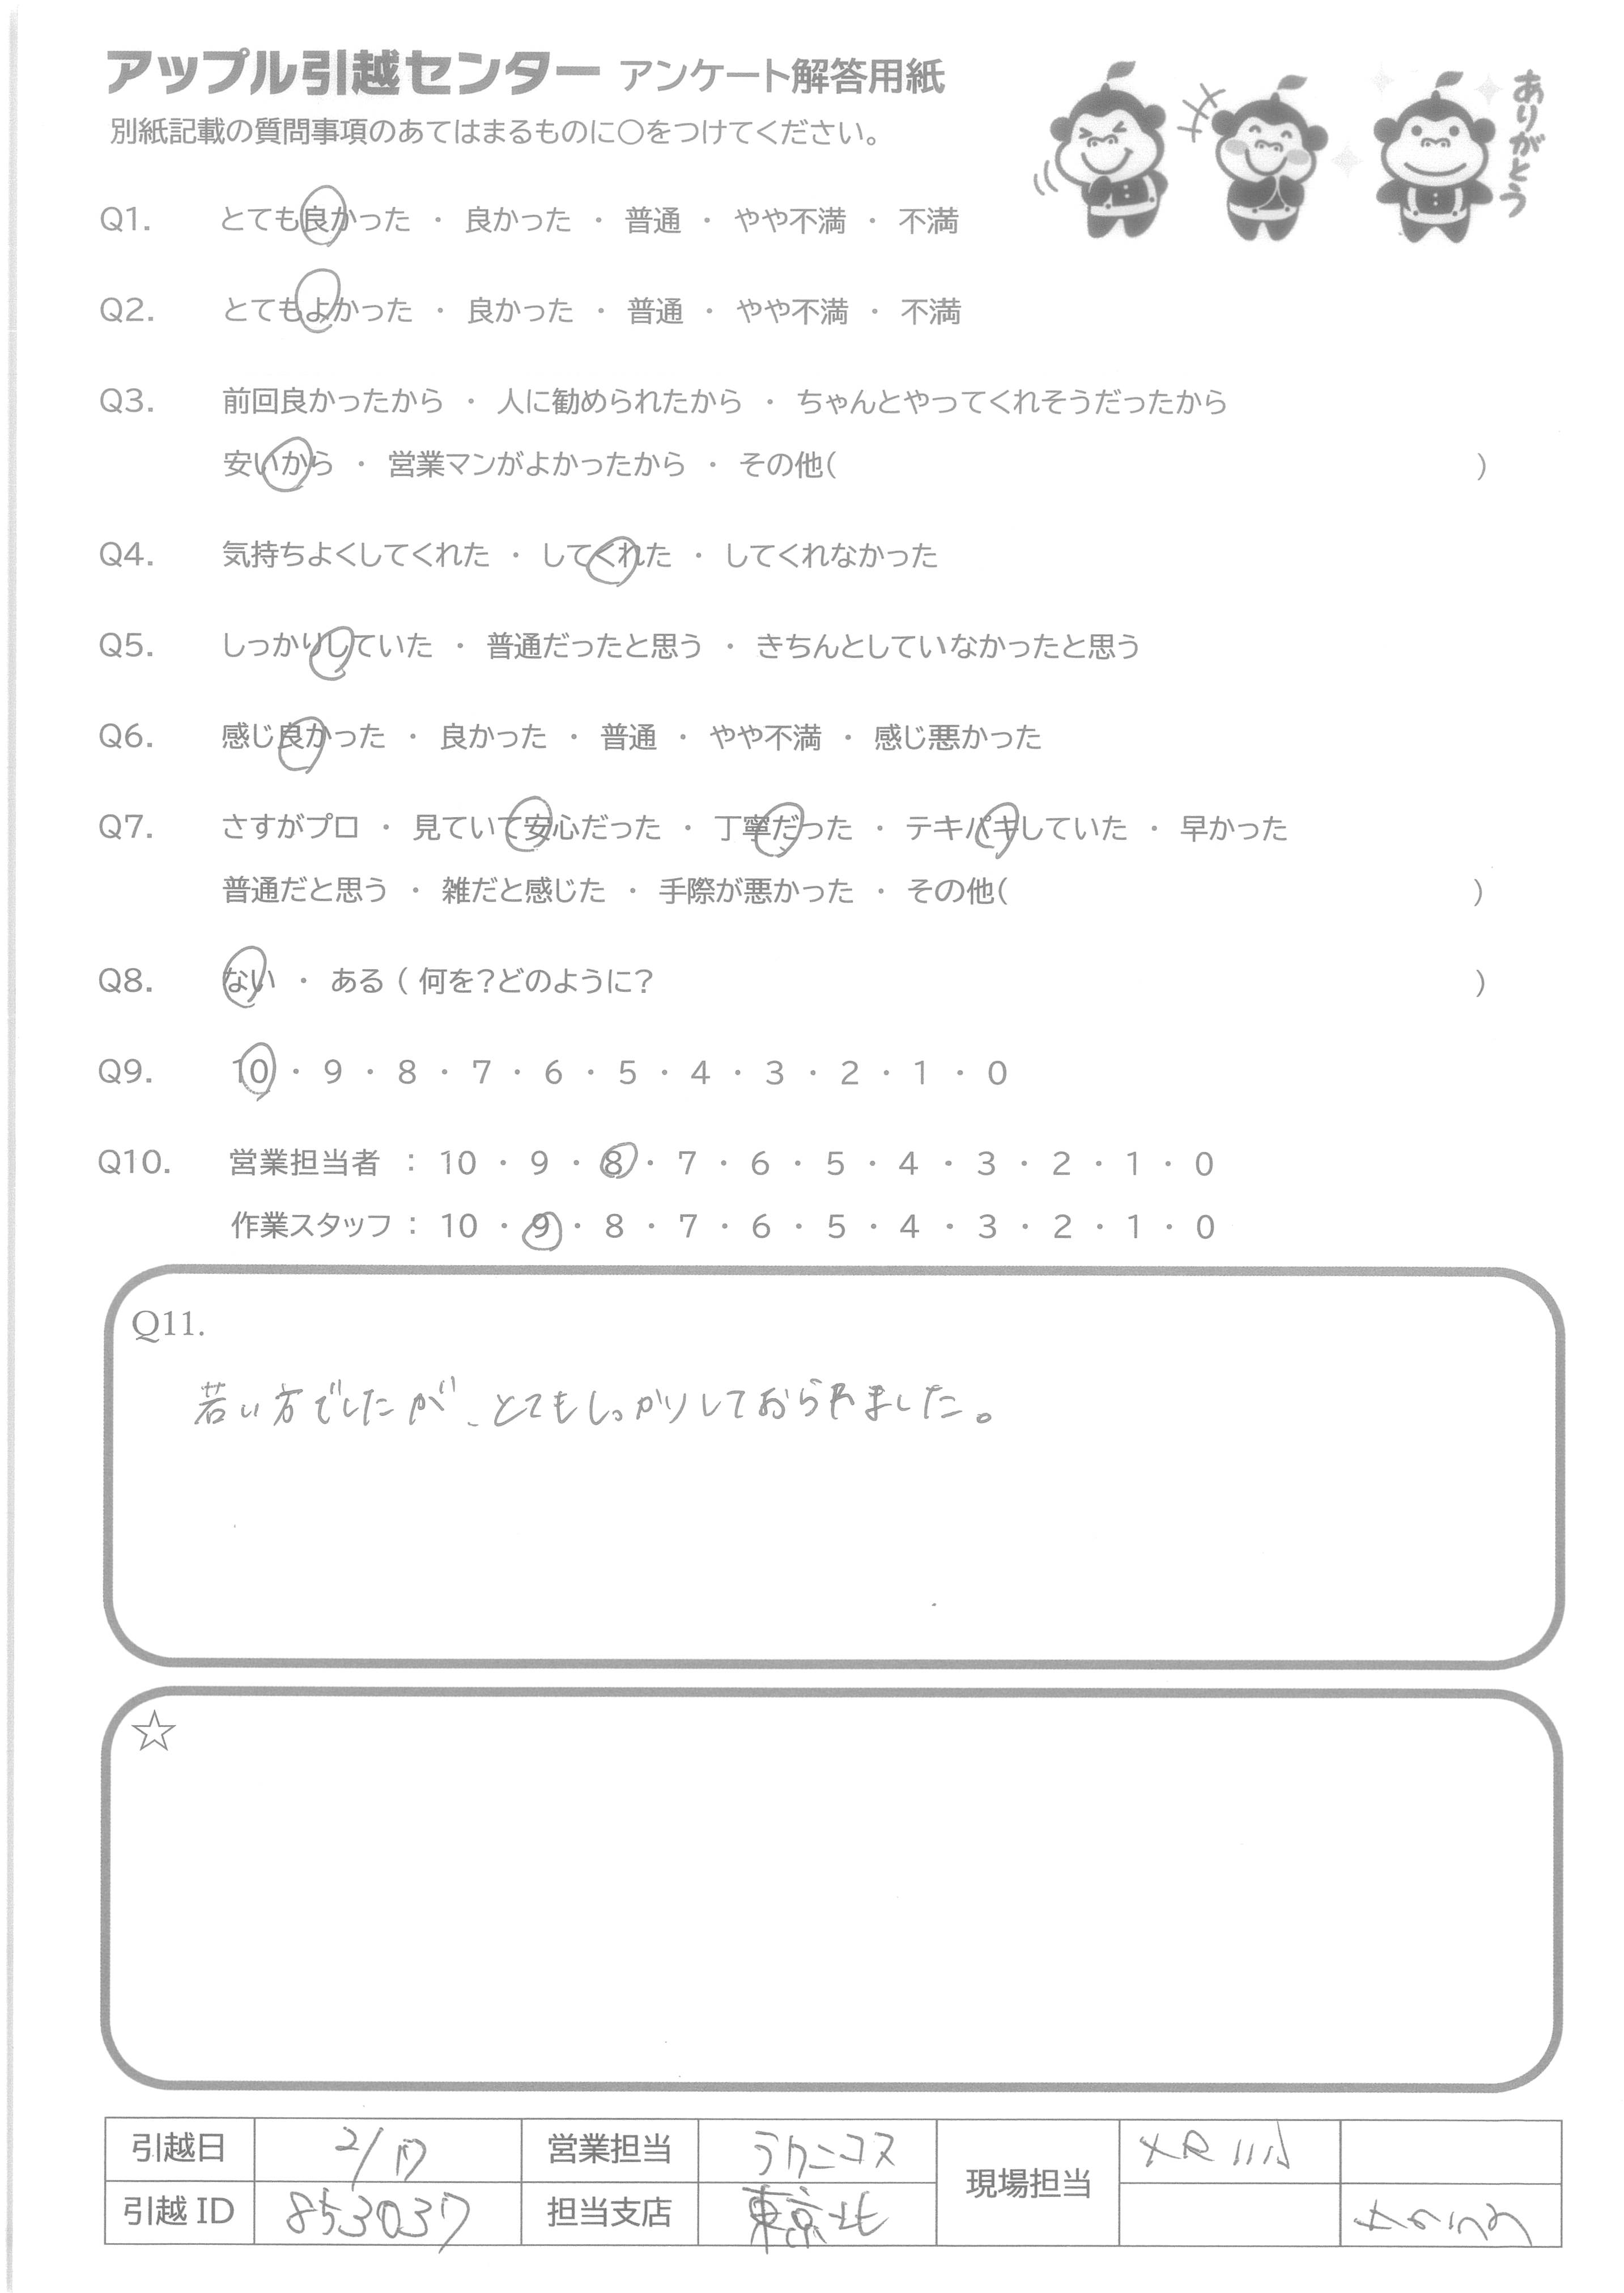 アップル引越センター アンケート解答用紙
別紙記載の質問事項のあてはまるものに○をつけてください。
ありがとう
Q1. とても良かった ・ 良かった ・ 普通 ・ やや不満 ・ 不満
Q2. とてもよかった ・ 良かった ・ 普通 ・ やや不満 ・ 不満
Q3. 前回良かったから ・ 人に勧められたから ・ ちゃんとやってくれそうだったから
安いから ・ 営業マンがよかったから ・ その他( )
Q4. 気持ちよくしてくれた ・ してくれた ・ してくれなかった
Q5. しっかりしていた ・ 普通だったと思う ・ きちんとしていなかったと思う
Q6. 感じ良かった ・ 良かった ・ 普通 ・ やや不満 ・ 感じ悪かった
Q7. さすがプロ ・ 見ていて安心だった ・ 丁寧だった ・ テキパキしていた ・ 早かった
普通だと思う ・ 雑だと感じた ・ 手際が悪かった ・ その他( )
Q8. ない ・ ある ( 何を?どのように? )
Q9. 10 ・ 9 ・ 8 ・ 7 ・ 6 ・ 5 ・ 4 ・ 3 ・ 2 ・ 1 ・ 0
Q10. 営業担当者 : 10 ・ 9 ・ 8 ・ 7 ・ 6 ・ 5 ・ 4 ・ 3 ・ 2 ・ 1 ・ 0
作業スタッフ : 10 ・ 9 ・ 8 ・ 7 ・ 6 ・ 5 ・ 4 ・ 3 ・ 2 ・ 1 ・ 0
Q11.
若い方でしたが、とてもしっかりしておられました。
☆
引越日 2/17 営業担当 ラクニコス 現場担当
引越 ID 853037 担当支店 東京北